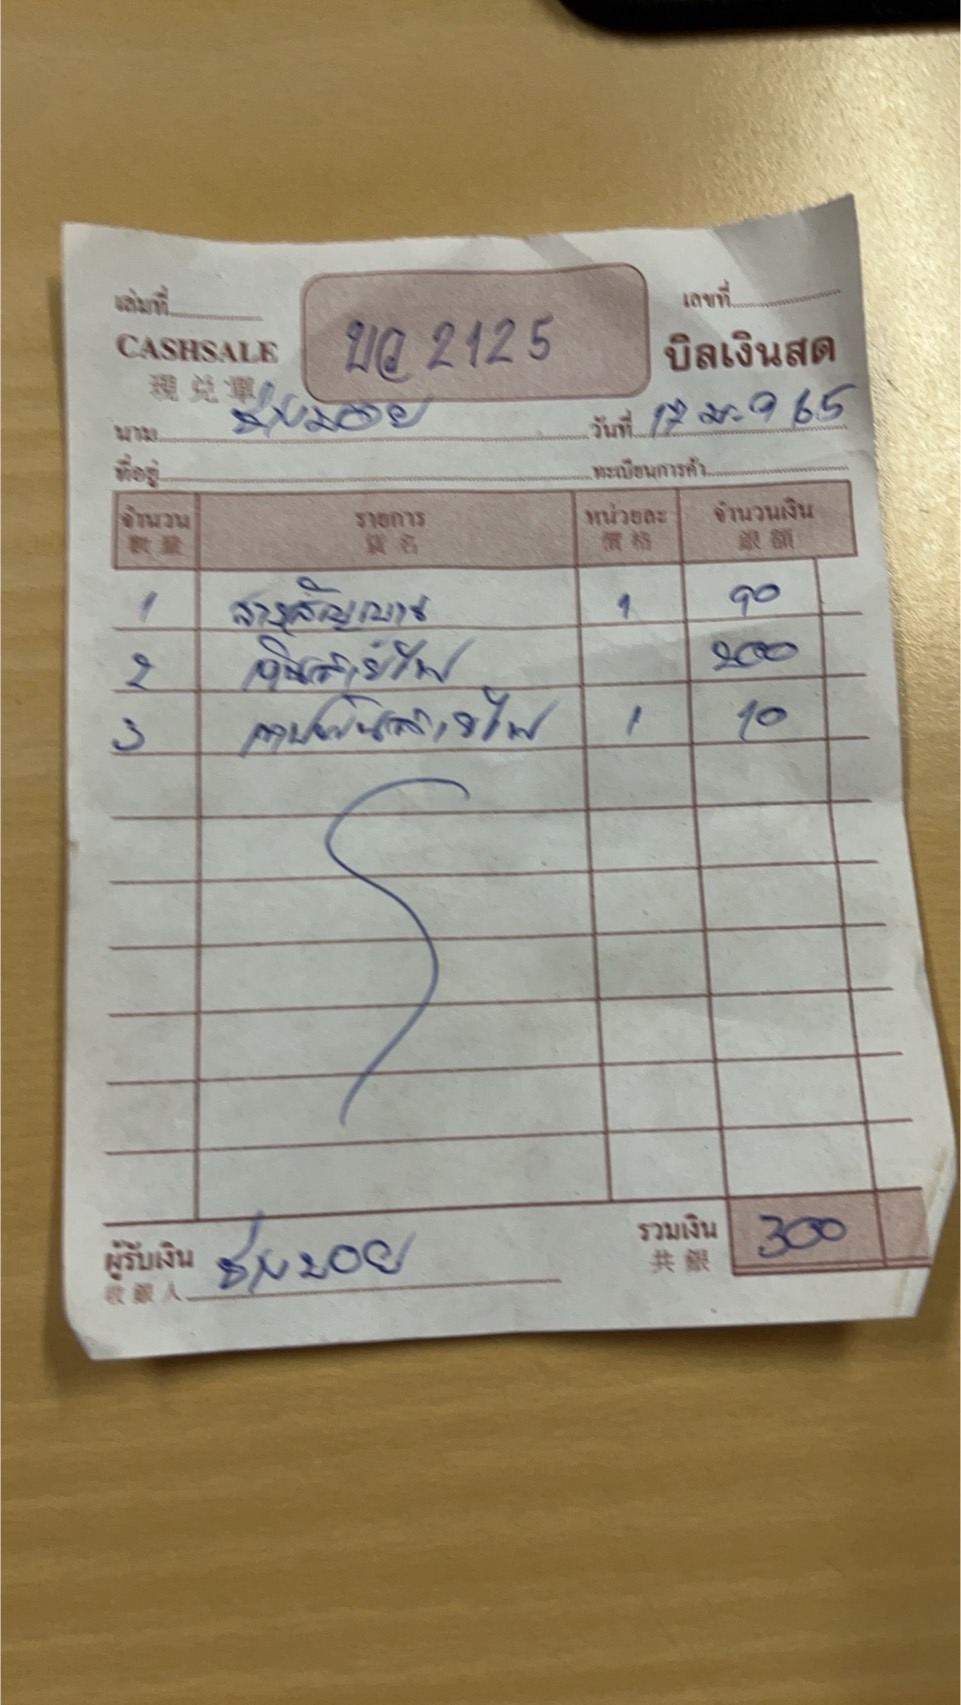 เล่มที่ เลขที่
บจ 2125
CASHSALE บิลเงินสด
現兌單
นาม วันที่ 17 ม.ค 65
ที่อยู่ ทะเบียนการค้า
จำนวน รายการ หน่วยละ จำนวนเงิน
數量 貨名 價格 銀額
1 สายสัญญาณ 1 90
2 เดินสายไฟ 200
3 เทปพันสายไฟ 1 10
ผู้รับเงิน รวมเงิน 300
收銀人 共銀